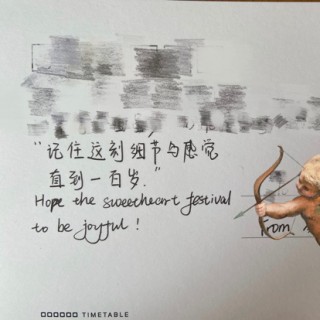 "记住这刻细节与感觉
直到一百岁."
Hope the sweetheart festival
to be joyful!
From
TIMETABLE